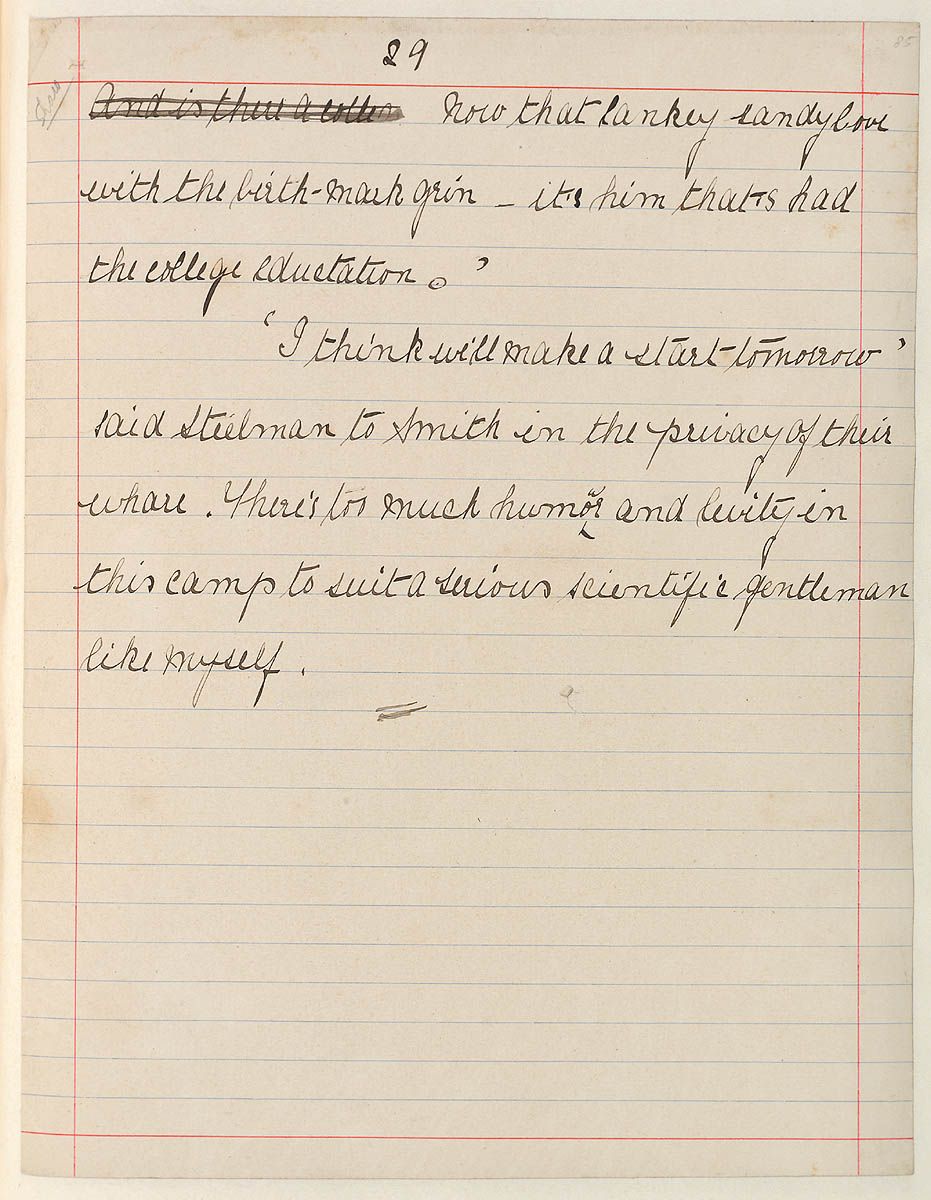 29
85
And is there a colle Now that lankey sandy bove
with the birth-mark grin – it's him that's had
the college eductation. ’
‘I think will make a start tomorrow’
said Steelman to Smith in the privacy of their
whare. There's too much humor and levity in
this camp to suit a serious scientific gentleman
like myself.